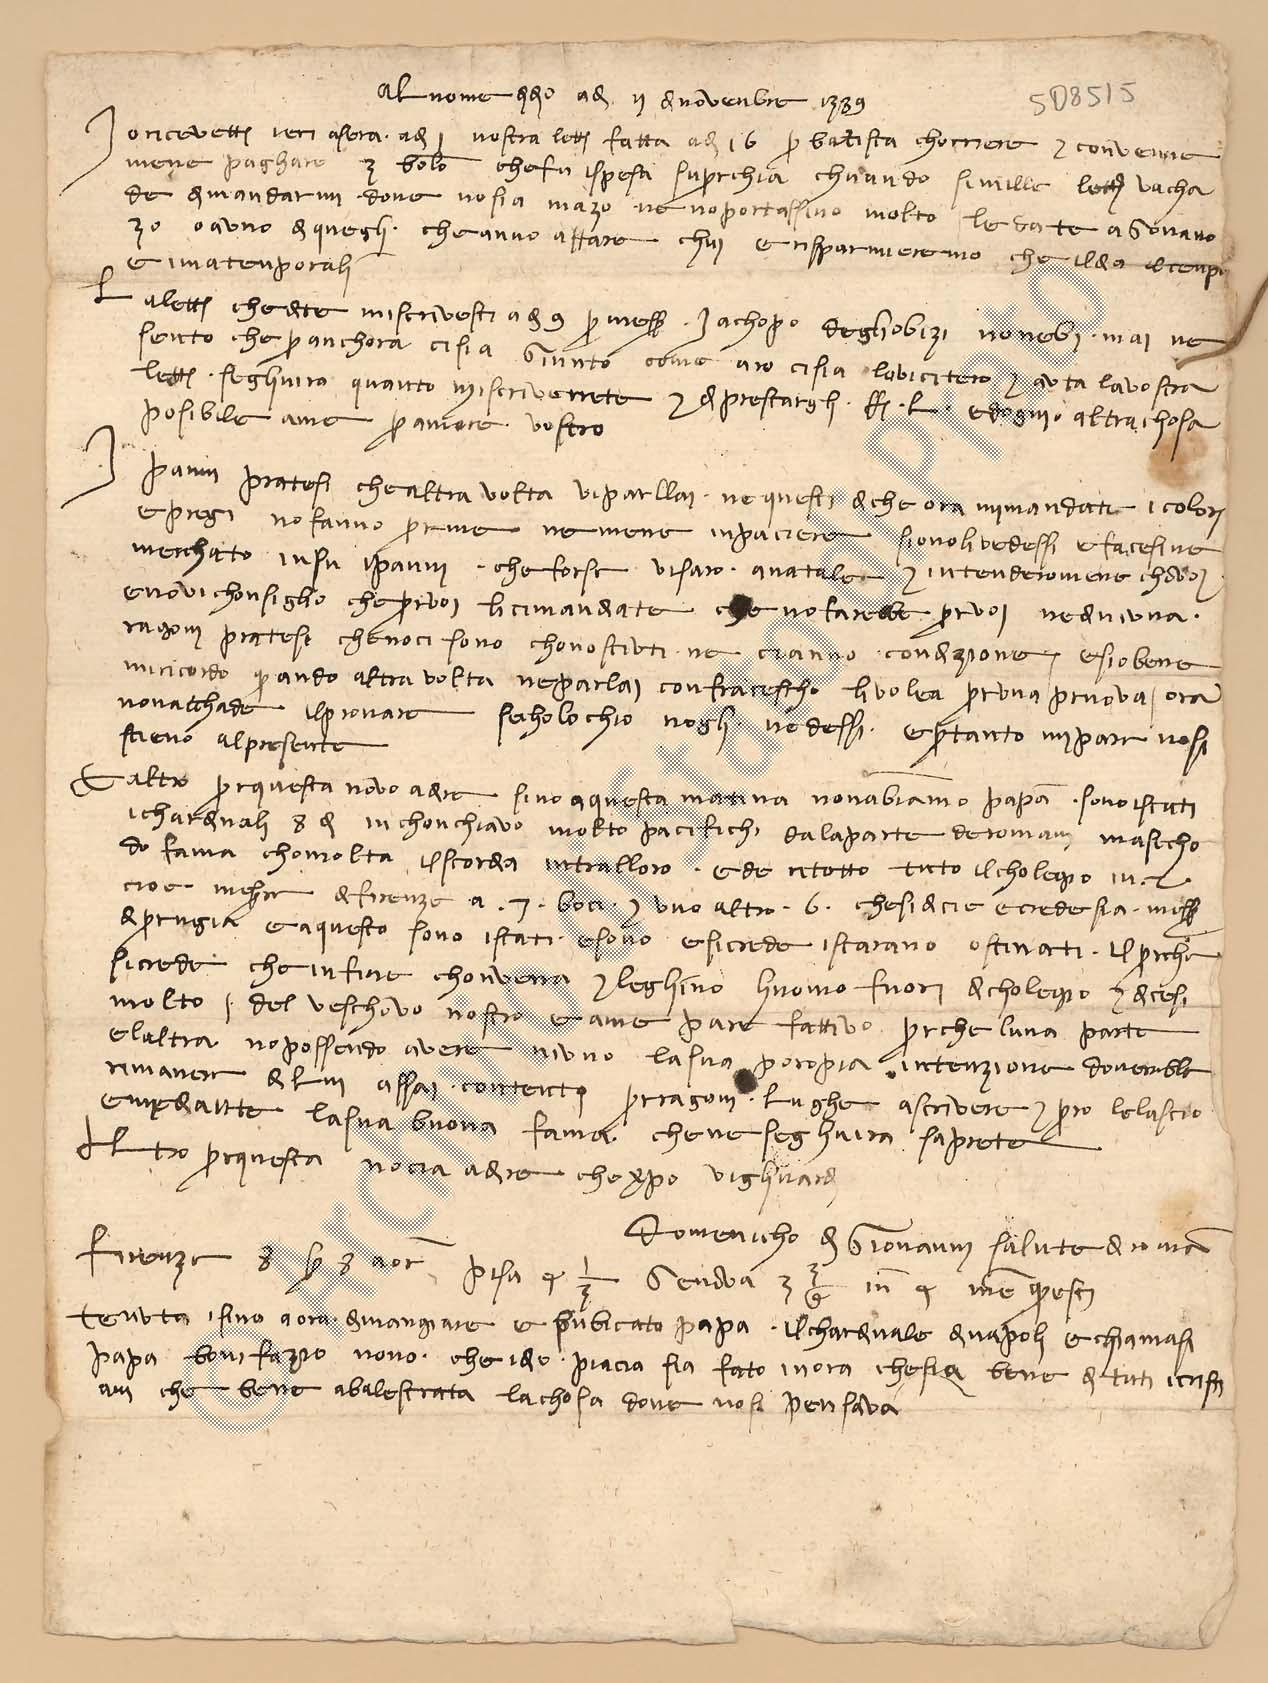 Al nome d dio a dì 11 di novenbre 1389
508515
Io ricevetti ieri a sera a dì 1 vostra letta fatta a dì 16 per batista chorriere e convenne
mene paghare 3 bolo che fu ispesa superchia chuando simille lette vacha
de di mandarmi dove no sia mazo ne no portassino molto le date a Giovano
zo o a uno di quegli che anno affare chui e risparmieremo che il da il tenpo
e ma tenporali
La letta che di te mi scrivesti a dì 9 per mess Jachopo degli obizi no n ebi mai ne
sento che per anchora ci sia giunto come aro ci sia lo viciterò e auta la vostra
letta seghuirò quanto mi scriverrete e di prestargli ff L e dogni altra chosa
posibile a me per amore vostro
I panni pratesi che altra volta vi parllai ne questi di che ora mi mandate i colori
e pregi no fanno per me ne mene inpaccere s io no li vedessi e facesine
merchato in su i panni che forse vi saro a natale e intenderomene cho voi
e no vi chonsiglio che per voi li ci mandate che no farebe per voi ne di niuna
ragoni pratesi che no ci sono chonosciuti ne ci anno condizione e s io bene
mi ricordo quando altra volta ne parlai con fracescho li volea per una pruova ora
non acchade il provare se cholochio no gli vedessi e per tanto mi pare no si
facino al presente
E altro per questa no v o a dire sino a questa matina non abiamo papa sono istati
i chardinali 8 dì in chonchiavo molto pacifichi da la parte de romani ma secho
do fama cho molta ischordia intralloro ed e ritotto tuto il cholegio in 2
cioe messer di firenze a 7 boci e uno altro 6 che si dicie e crede sia mess
di perugia e a questo sono istati e sono e si crede istarano ostinati il perche
si crede che in fine chonverra eleghino h uomo fuori di cholegio e dicesi
molto del veschovo nostro e a me pare fattivo perche l una parte
e l altra no possendo avere niuno la sua propia intenzione doverebbe
rimanere di lui assai contento per ragoni lughe a scrivere e pero le lascio
la sua buona fama che ne seghuira saprete
Altro per questa no ci a a dire che xpo vi ghuardi
Domenicho di Giovanni salute di roma
Firenze 8 per 8 a or pisa 4 1/2 Genova 3
tenuta isino a ora di mangiare e publicato papa il chardinale di napoli e chiamasi
papa bonifazio nono che idio piacia sia fato in ora che sia bene di tuti i cristi
ani che bene a balestrata la chosa dove no si pensava